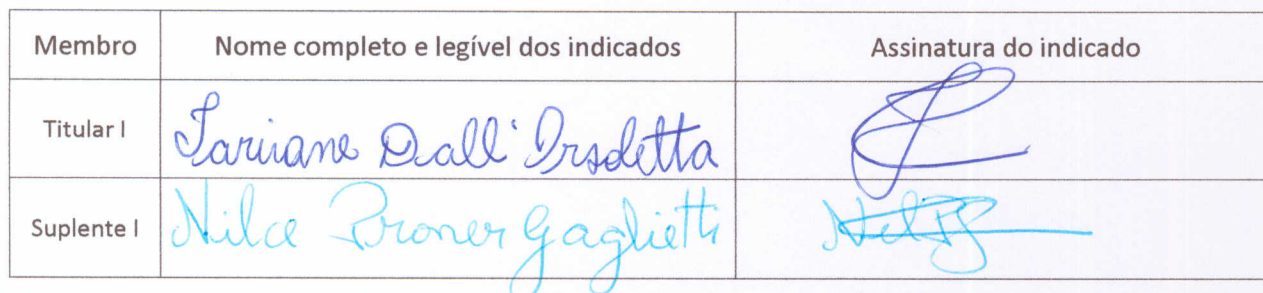 Membro Nome completo e legível dos indicados Assinatura do indicado
Titular I Dall' Orsoletta
Suplente I Nilce Broner Gaglietti